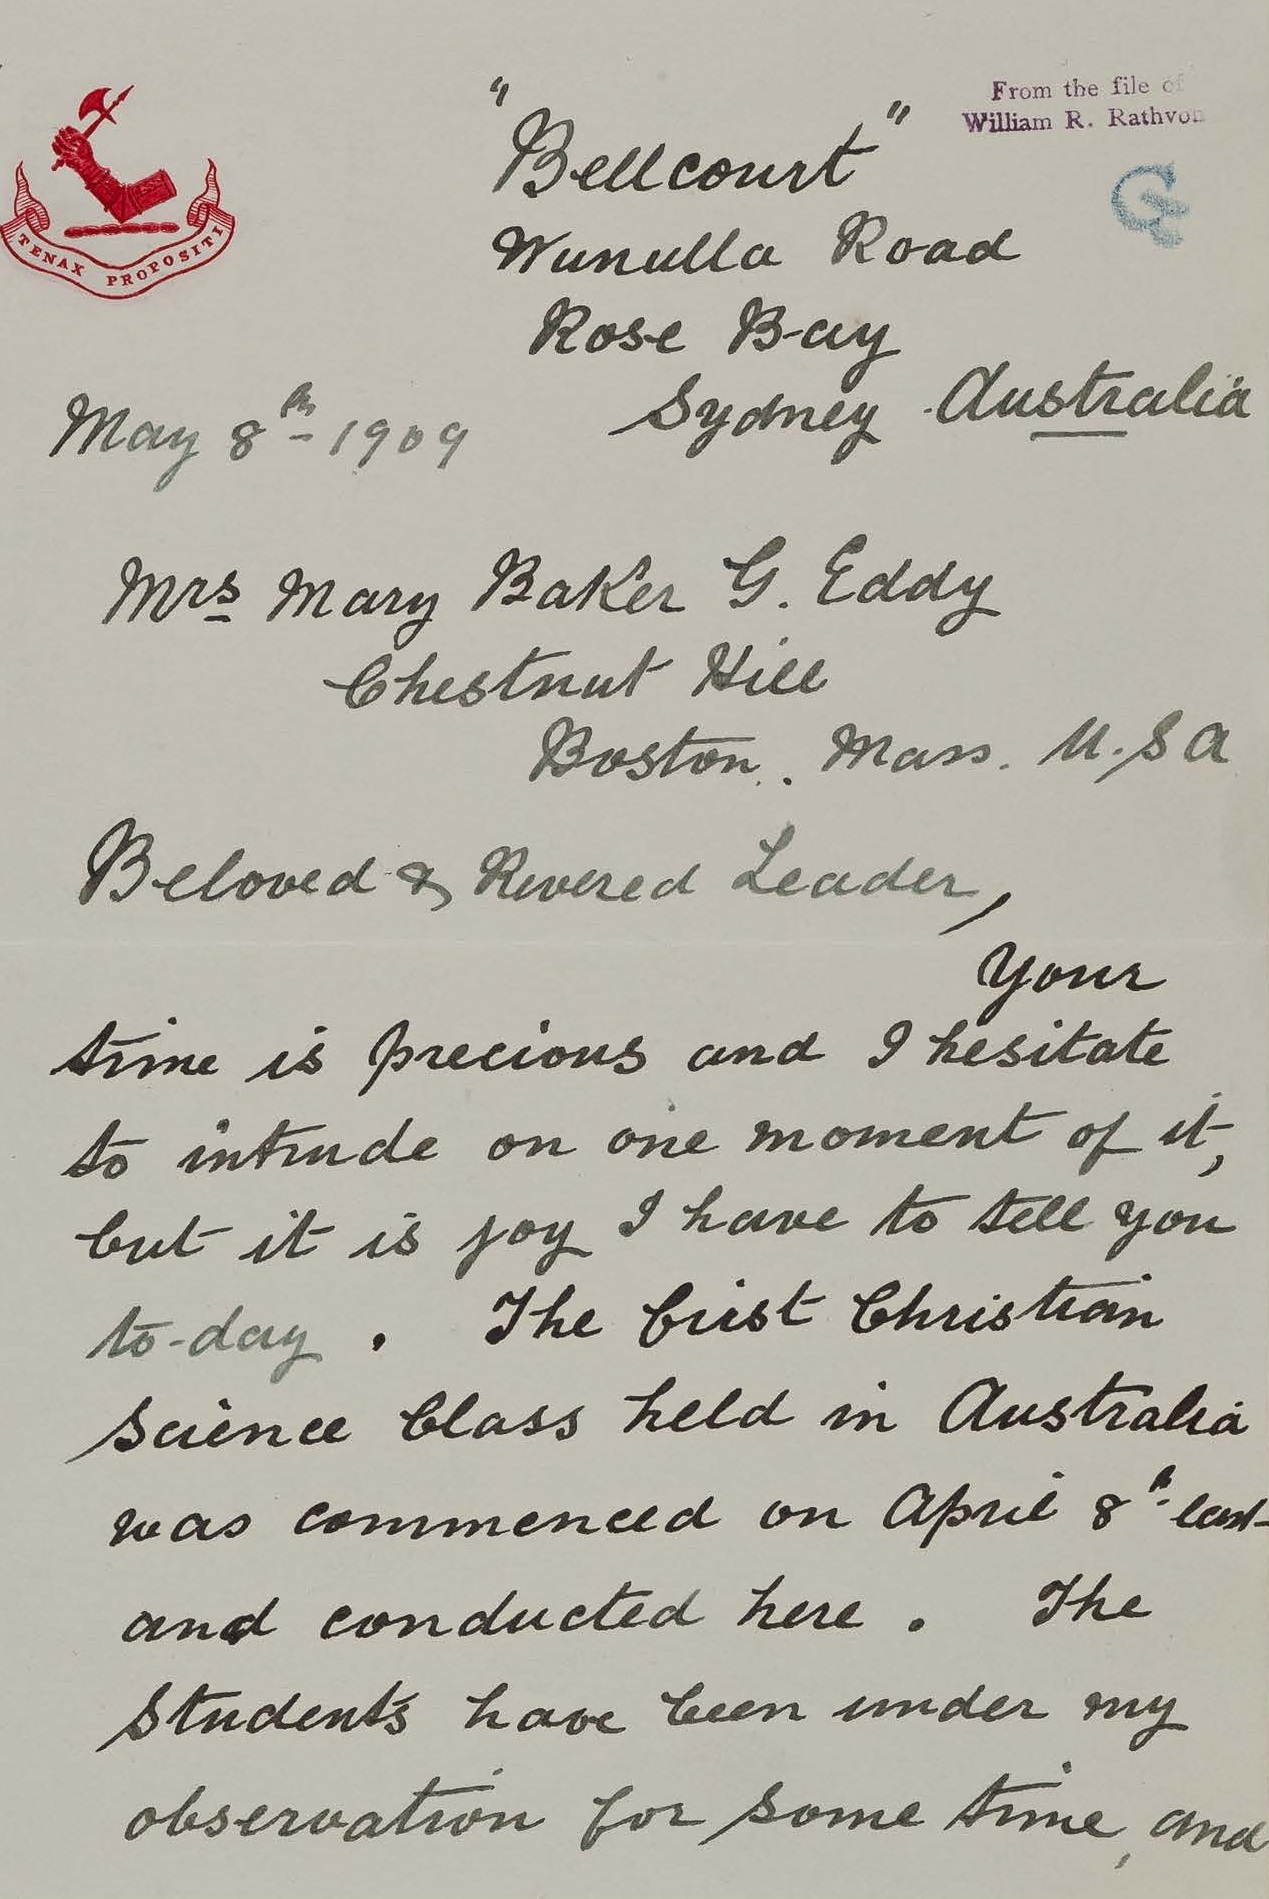 TENAX PROPOSITI
From the file of
William R. Rathvon
"Bellcourt"
Wunulla Road
Rose Bay
Sydney Australia
May 8th - 1909
Mrs Mary Baker G. Eddy
Chestnut Hill
Boston. Mass. U.S A
Beloved & Revered Leader,
Your
time is precious and I hesitate
to intrude on one moment of it,
but it is joy I have to tell you
to-day. The first Christian
Science Class held in Australia
was commenced on April 8th last-
and conducted here. The
Students have been under my
observation for some time, and